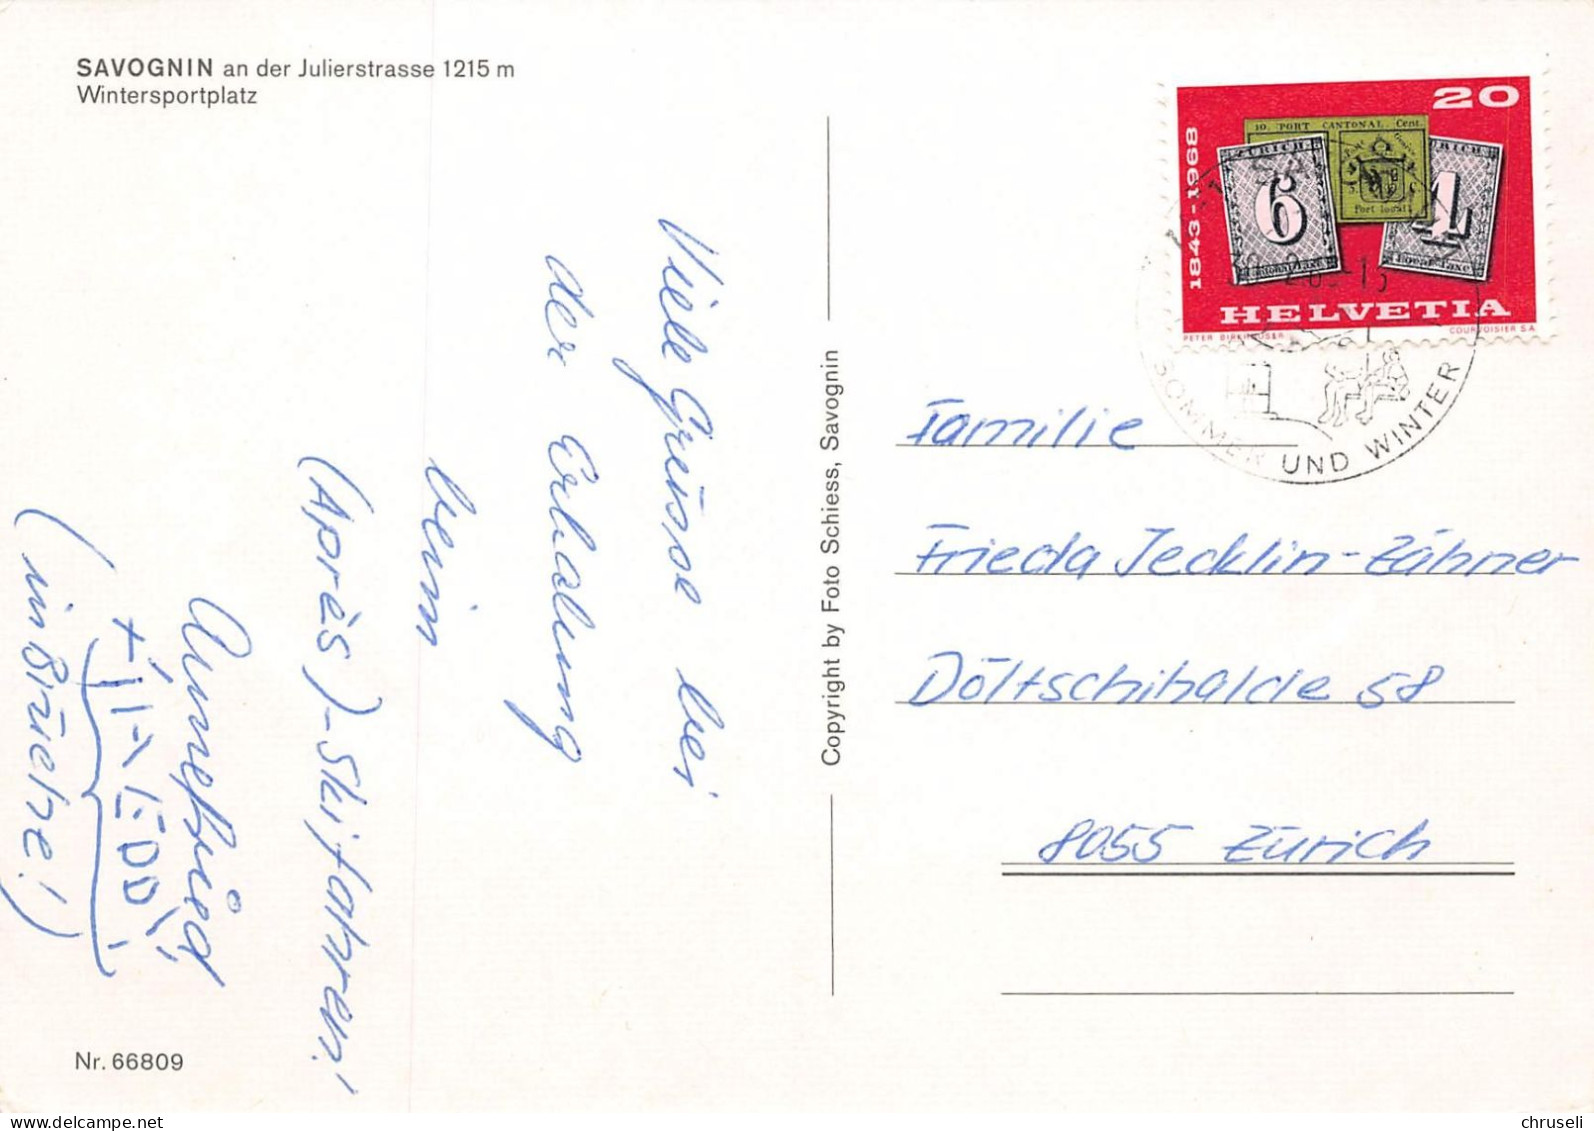 SAVOGNIN an der Julierstrasse 1215 m
Wintersportplatz
Viele Grüsse bei
der Erholung
beim
(Après)-Skifahren!
Annefried
+
(in Brüche!)
Nr. 66809
Copyright by Foto Schiess, Savognin
20
1843-1968
10. PORT CANTONAL. Cent.
ZÜRICH
6
Port local
4
Local-Taxe
HELVETIA
PETER BIRKHÄUSER
COURVOISIER S A
SOMMER UND WINTER
Familie
Frieda Jecklin-Zähner
Döltschihalde 58
8055 Zürich
chruseli